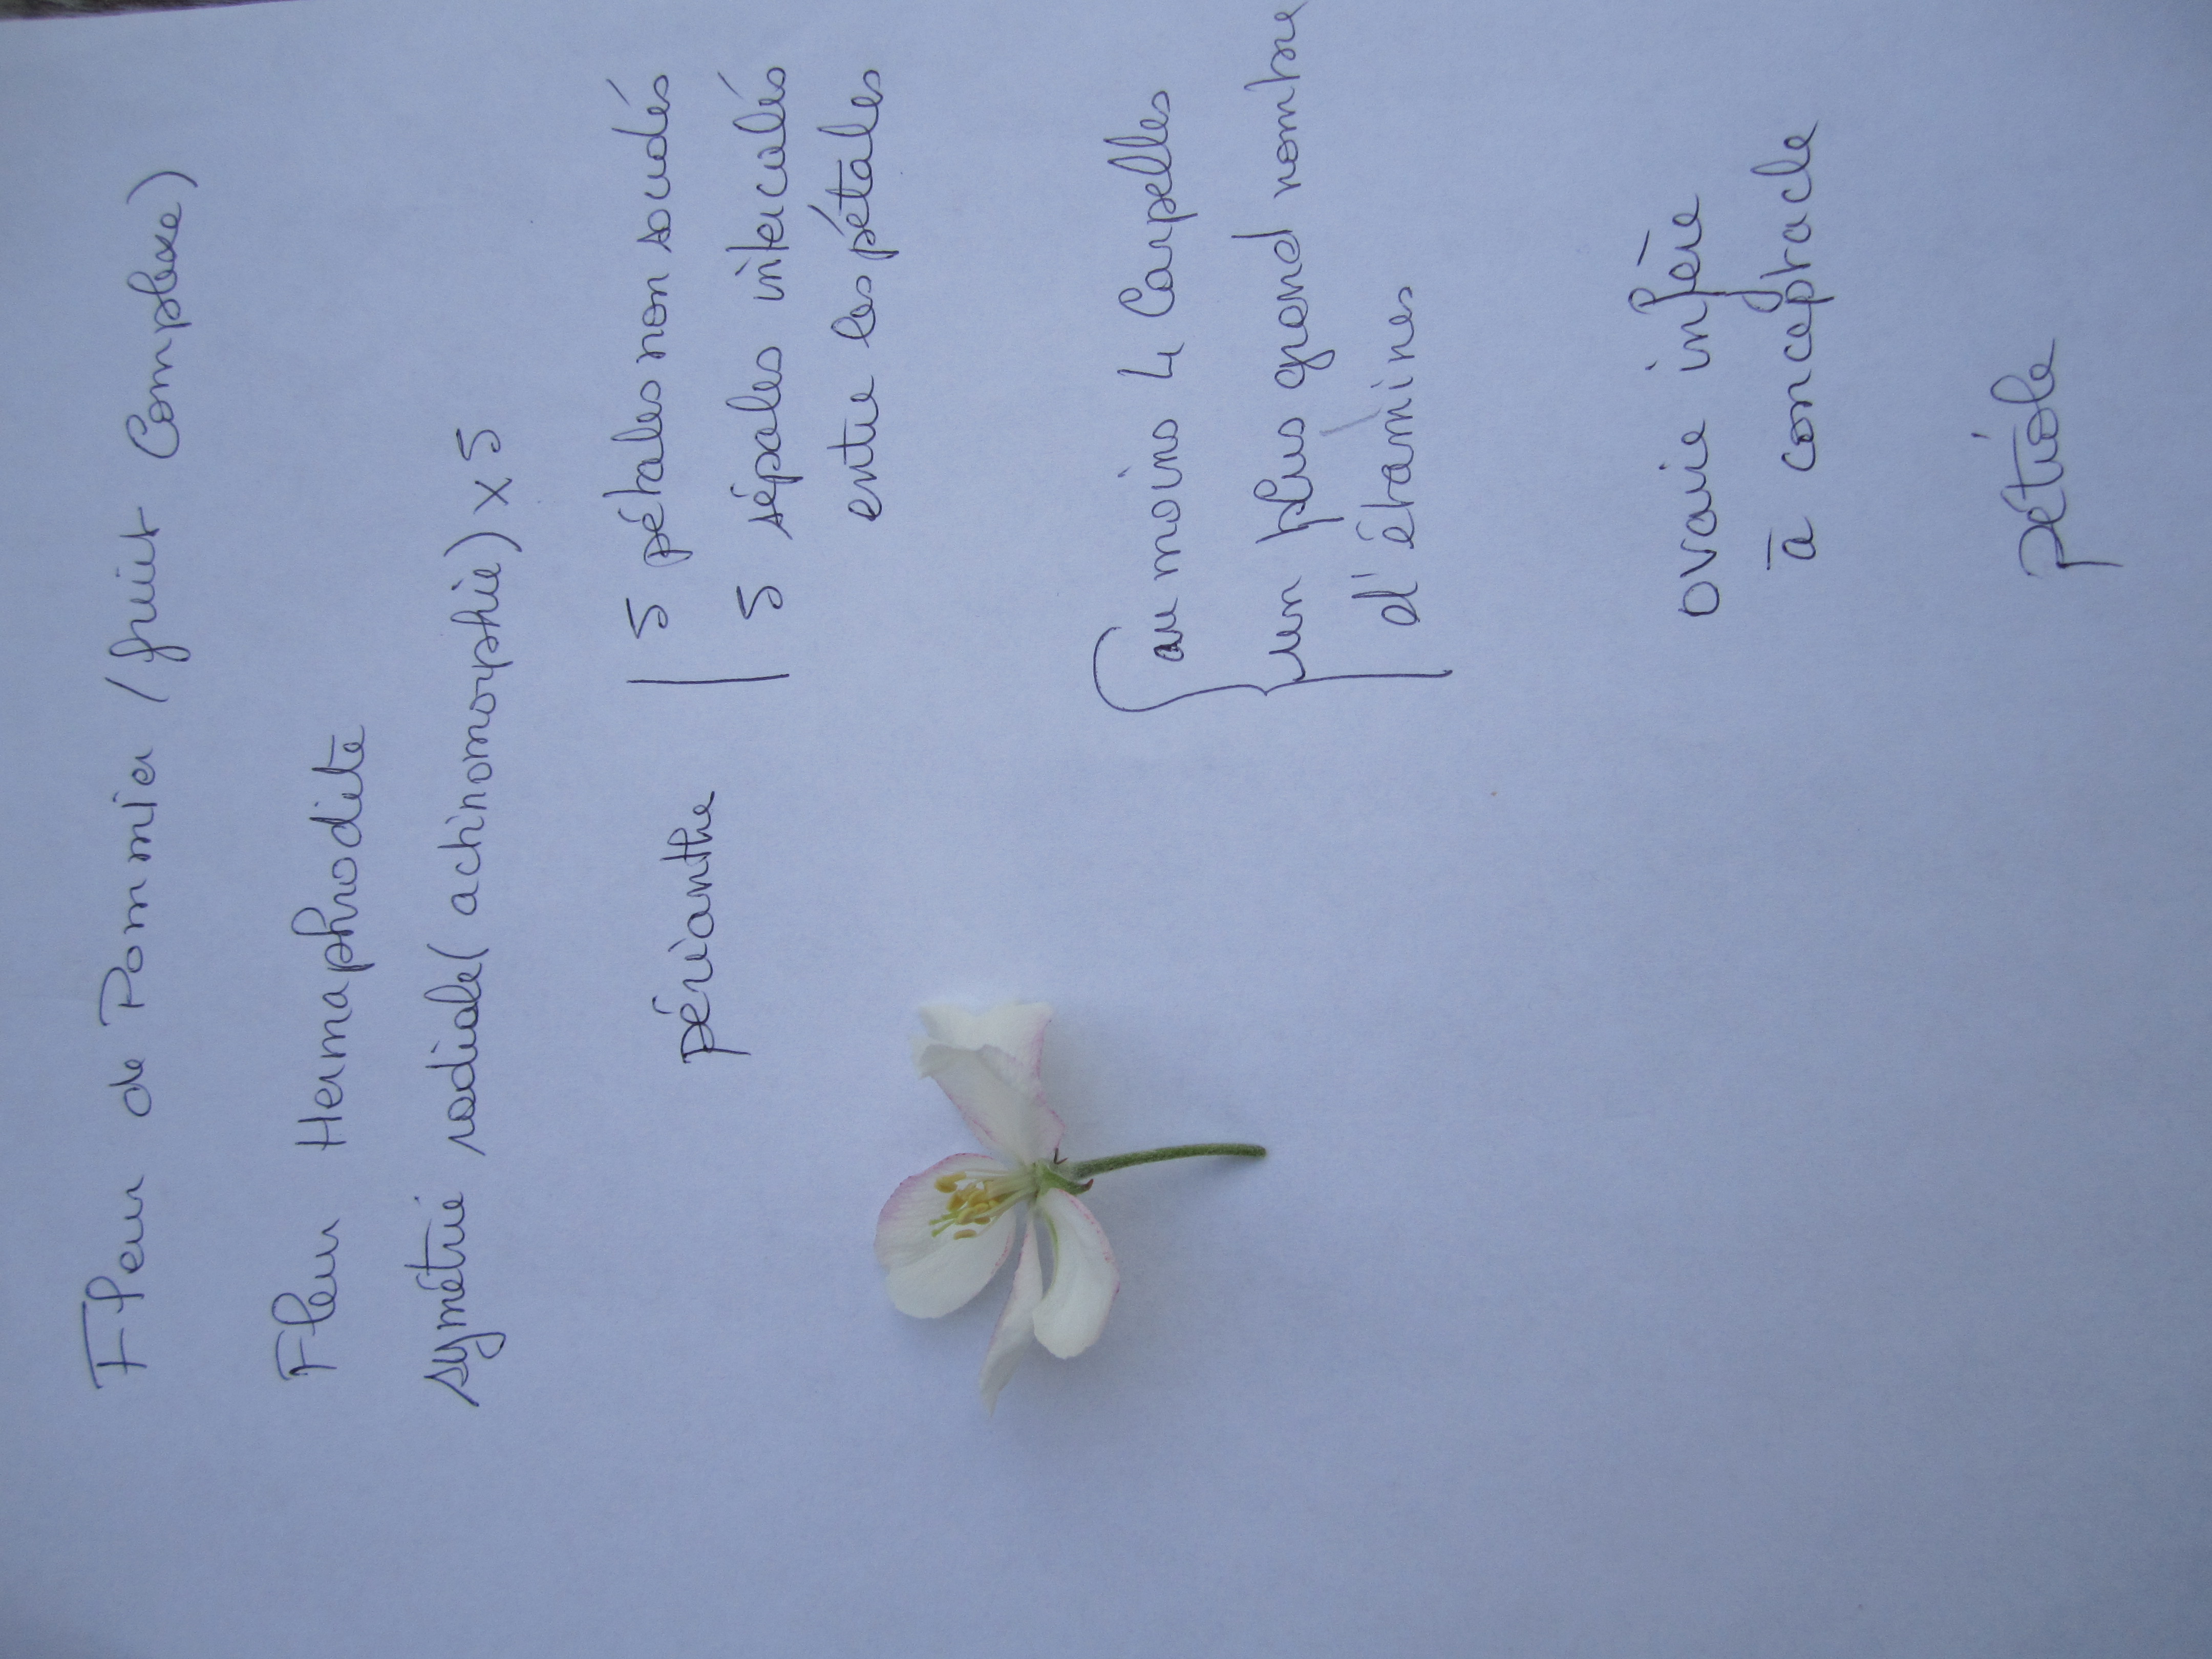 Fleur de Pommier (fruit Complexe)
Fleur Hermaphrodite
symétrie radiale (achinomorphie) x 5
périanthe
5 pétales non soudés
5 sépales intercalés
entre les pétales
au moins 4 Carpelles
un plus grand nombre
d'étamines
ovaire infère
à conceptracle
pétiole